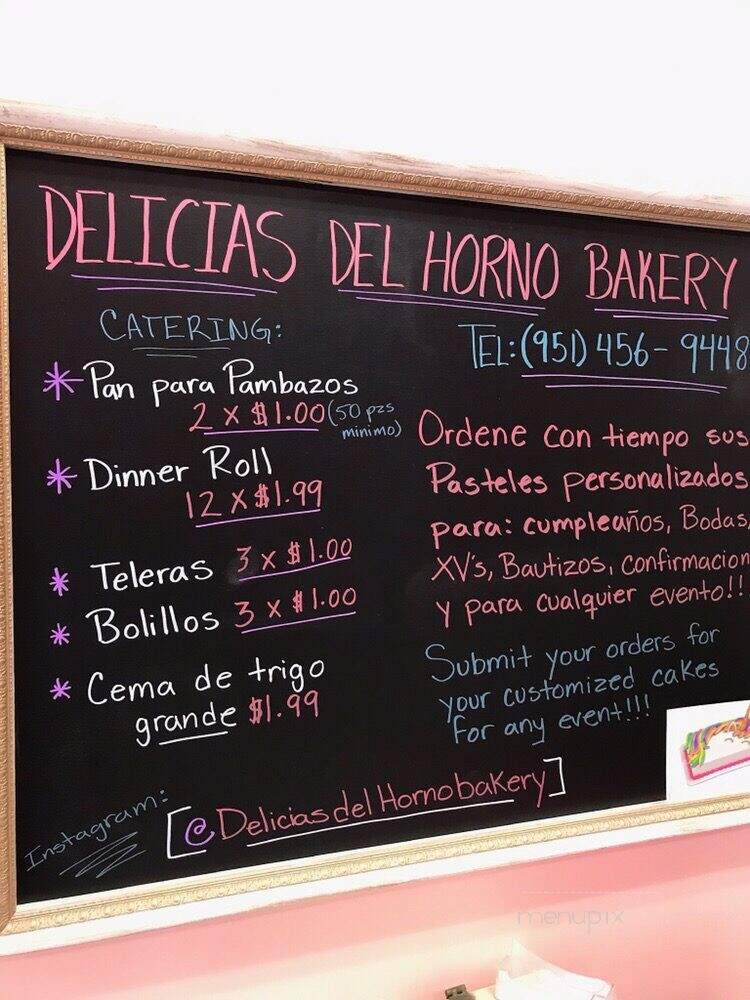 DELICIAS DEL HORNO BAKERY
CATERING:
* Pan para Pambazos
2 x $1.00 (50 pzs
minimo)
* Dinner Roll
12 x $1.99
* Teleras 3 x $1.00
* Bolillos 3 x $1.00
* Cema de trigo
grande $1.99
TEL: (951) 456-9448
Ordene con tiempo sus
Pasteles personalizados
para: cumpleaños, Bodas,
XV's, Bautizos, confirmacion
y para cualquier evento!!
Submit your orders for
your customized cakes
for any event!!!
Instagram:
[@DeliciasdelHornobakery]
menupix